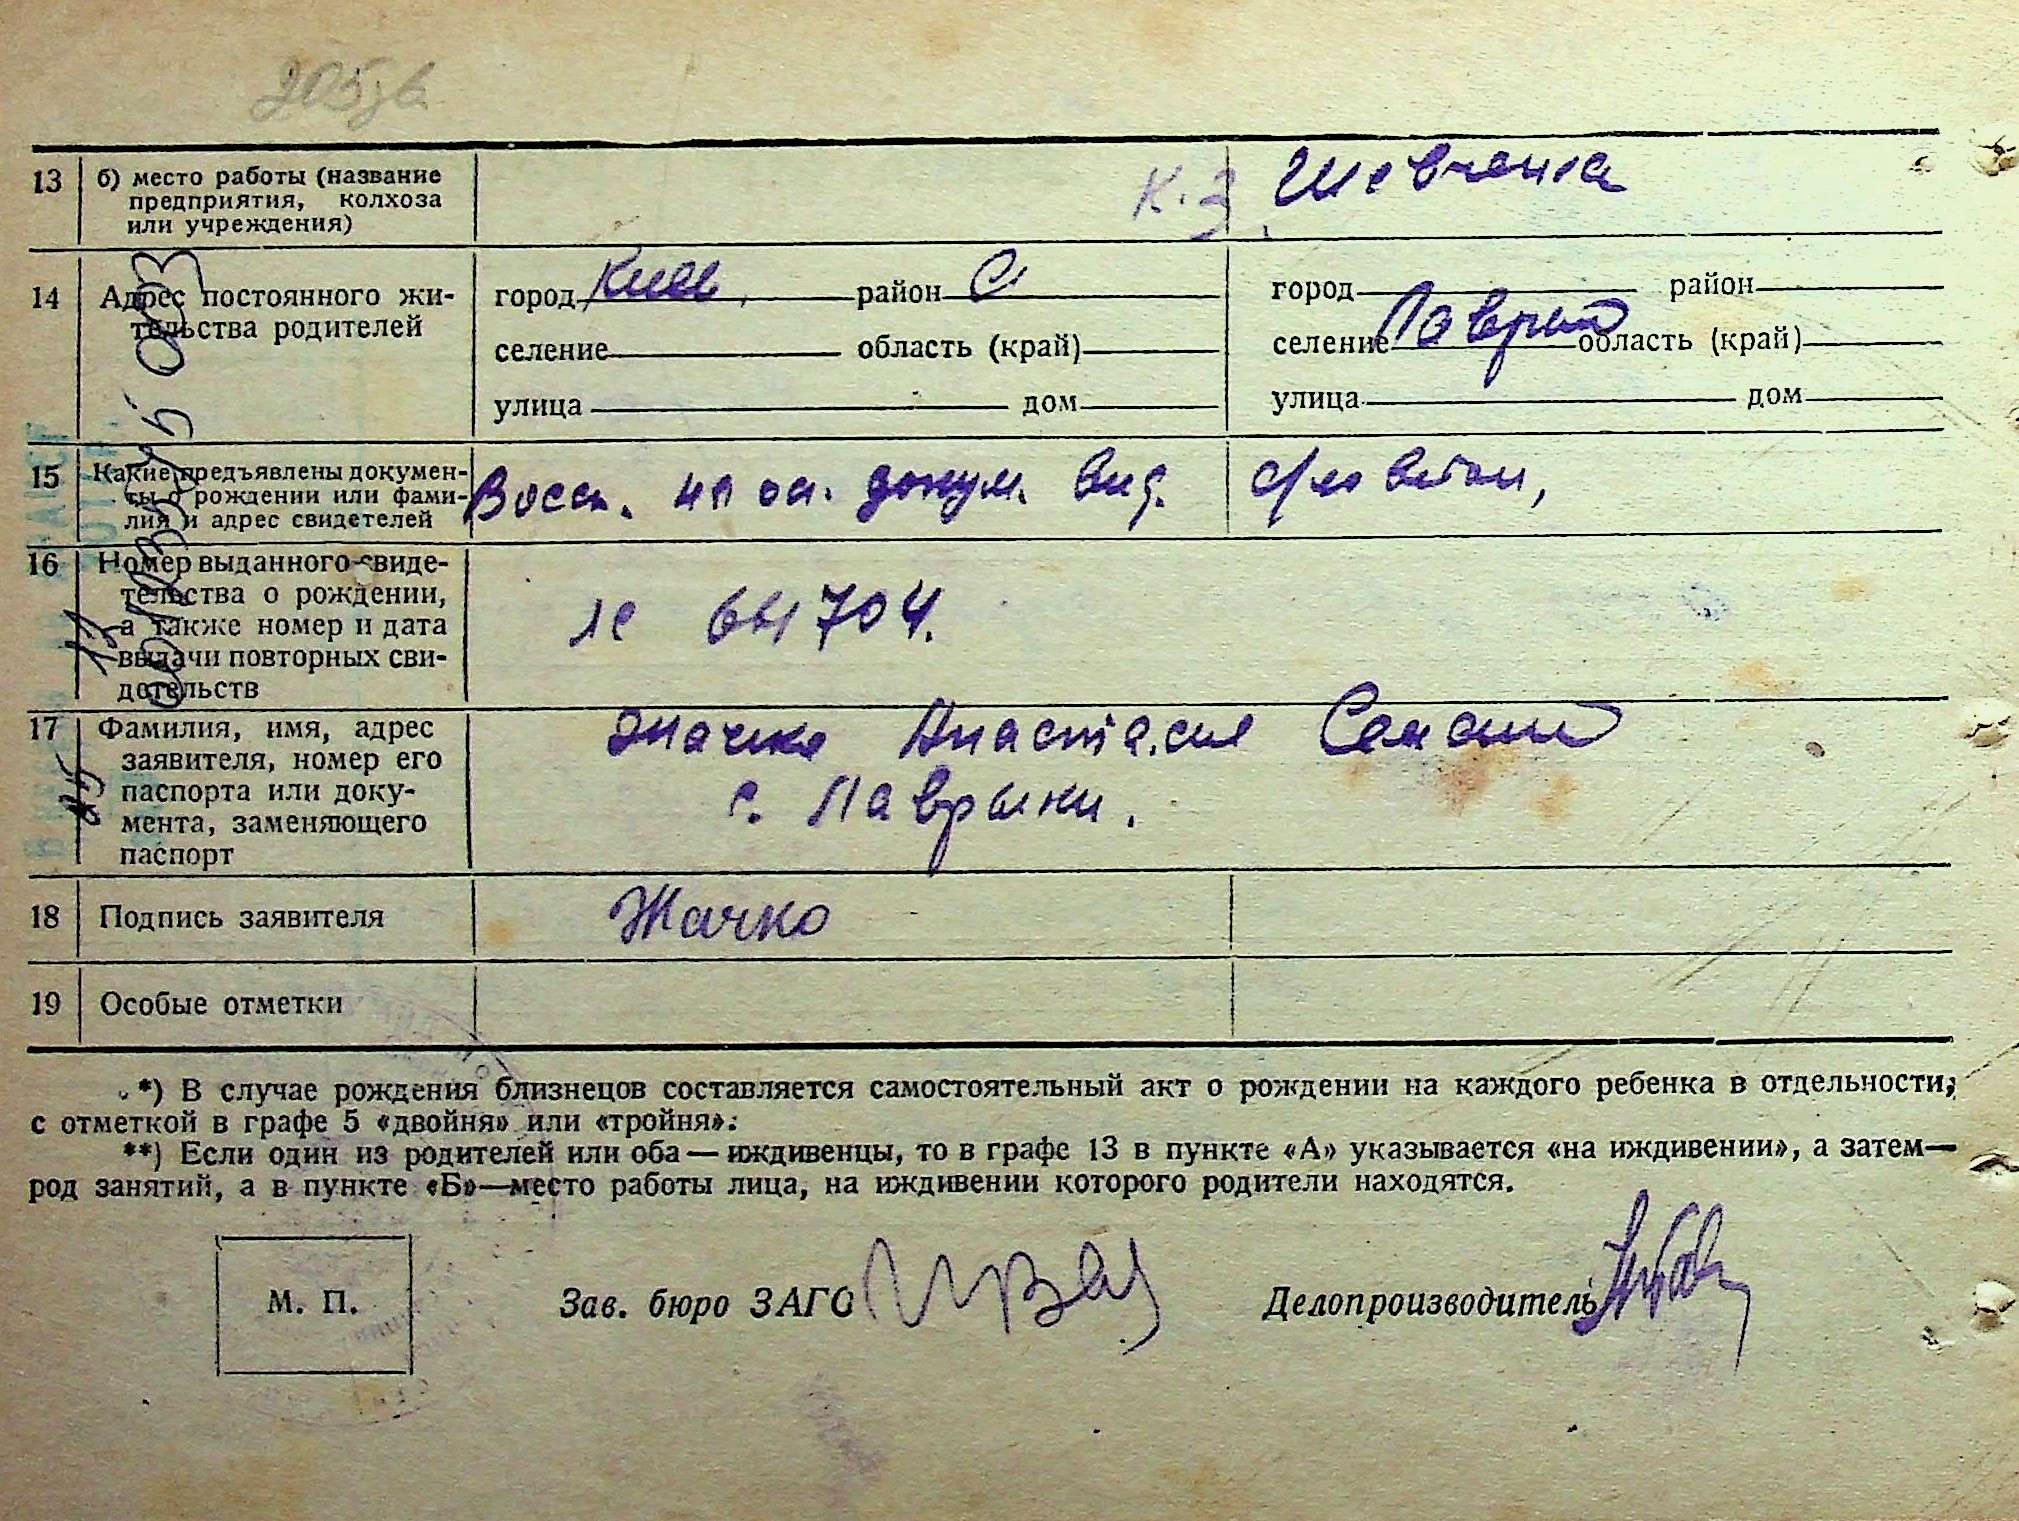 13 б) место работы (название
предприятия, колхоза
или учреждения)
к.з. Шевченка
14 Адрес постоянного жи-
тельства родителей
город Киев, район С
селение область (край)
улица дом
город район
селение Лаврик область (край)
улица дом
15 Какие предъявлены докумен-
ты о рождении или фами-
лия и адрес свидетелей
Восст. на осн. докум. выд. с/советом,
16 Номер выданного свиде-
тельства о рождении,
а также номер и дата
выдачи повторных сви-
детельств
704.
17 Фамилия, имя, адрес
заявителя, номер его
паспорта или доку-
мента, заменяющего
паспорт
Жачко Анастасия
с. Лаврыки.
18 Подпись заявителя
Жачко
19 Особые отметки
*) В случае рождения близнецов составляется самостоятельный акт о рождении на каждого ребенка в отдельности,
с отметкой в графе 5 «двойня» или «тройня».
**) Если один из родителей или оба—иждивенцы, то в графе 13 в пункте «А» указывается «на иждивении», а затем—
род занятий, а в пункте «Б»—место работы лица, на иждивении которого родители находятся.
М. П.
Зав. бюро ЗАГС
Делопроизводитель